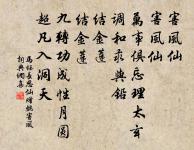 害風仙
害風仙
萬事俱忘理太玄
調和汞與鉛
結金蓮
結金蓮
九轉功成性月圓
超凡入洞天
馬鈺長思仙害風